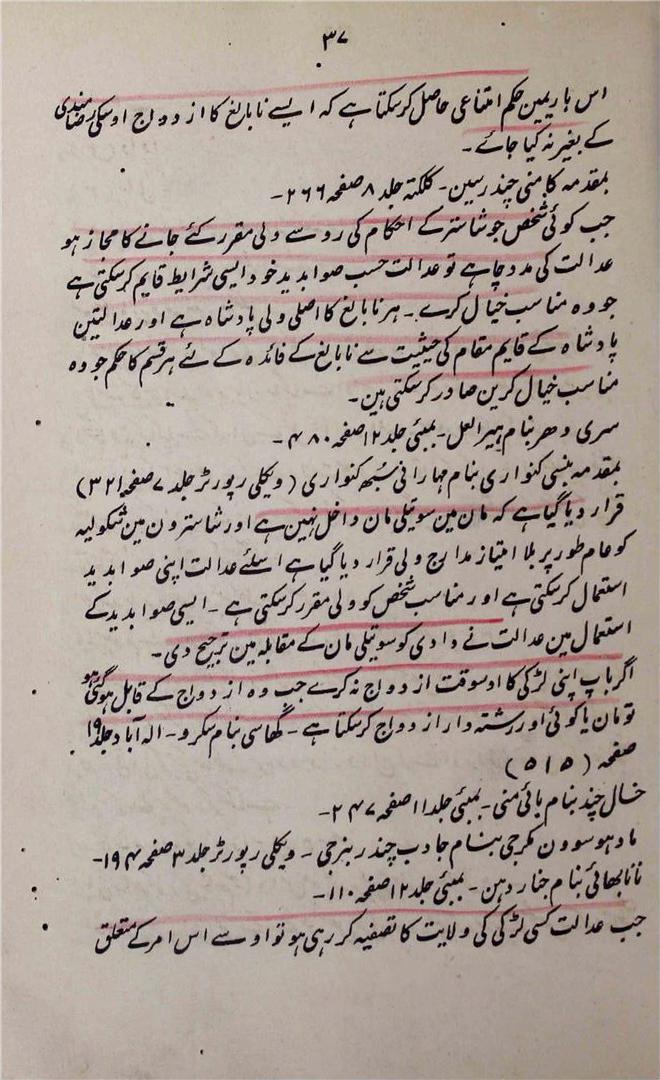 ۳۷
اس باریمین حکم امتناعی حاصل کرسکتا ہے کہ ایسے نابالغ کا ازدواج اوسکی رضامندی
کے بغیر نہ کیا جائے۔
بمقدمہ کامنی چندر سین۔ کلکتہ جلد ۸ صفحہ ۲۶۶۔
جب کوئی شخص جو شاستر کے احکام کی رو سے ولی مقرر کئے جانے کا مجاز ہو
عدالت کی مدد چاہے تو عدالت حسب صوابدید خود ایسی شرایط قایم کرسکتی ہے
جو وہ مناسب خیال کرے۔ ہر نابالغ کا اصلی ولی پادشاہ ہے اور عدالتین
پادشاہ کے قایم مقام کی حیثیت سے نابالغ کے فائدہ کے لئے ہر قسم کا حکم جو وہ
مناسب خیال کرین صادر کرسکتی ہین۔
سری دھر بنام ہیرالعل۔ بمبئی جلد ۱۲ صفحہ ۴۸۰۔
بمقدمہ بنسی کنواری بنام مہارانی سبھ کنواری (ویکلی رپورٹر جلد ۷ صفحہ ۳۲۱)
قرار دیا گیا ہے کہ مان مین سوتیلی مان داخل نہین ہے اور شاسترون مین سکولیہ
کو عام طور پر بلا امتیاز مدارج ولی قرار دیا گیا ہے اسلئے عدالت اپنی صوابدید
استعمال کرسکتی ہے اور مناسب شخص کو ولی مقرر کرسکتی ہے۔ ایسی صوابدید کے
استعمال مین عدالت نے دادی کو سوتیلی مان کے مقابلہ مین ترجیح دی۔
اگر باپ اپنی لڑکی کا اوسوقت ازدواج نہ کرے جب وہ ازدواج کے قابل ہوگئی ہو
تو مان یا کوئی اور رشتہ دار ازدواج کرسکتا ہے۔ گھاسی بنام سکرو۔ الہ آباد جلد ۱۹
صفحہ (۵۱۵)
خسال چند بنام بائی منی۔ بمبئی جلد ۱۱ صفحہ ۲۴۷۔
مادہوسوون مکرجی بنام جادب چندر بنرجی۔ ویکلی رپورٹر جلد ۳ صفحہ ۱۹۴۔
نانابھائی بنام جناردہن۔ بمبئی جلد ۱۲ صفحہ ۱۱۰۔
جب عدالت کسی لڑکی کی ولایت کا تصفیہ کر رہی ہو تو اوسے اس امر کے متعلق